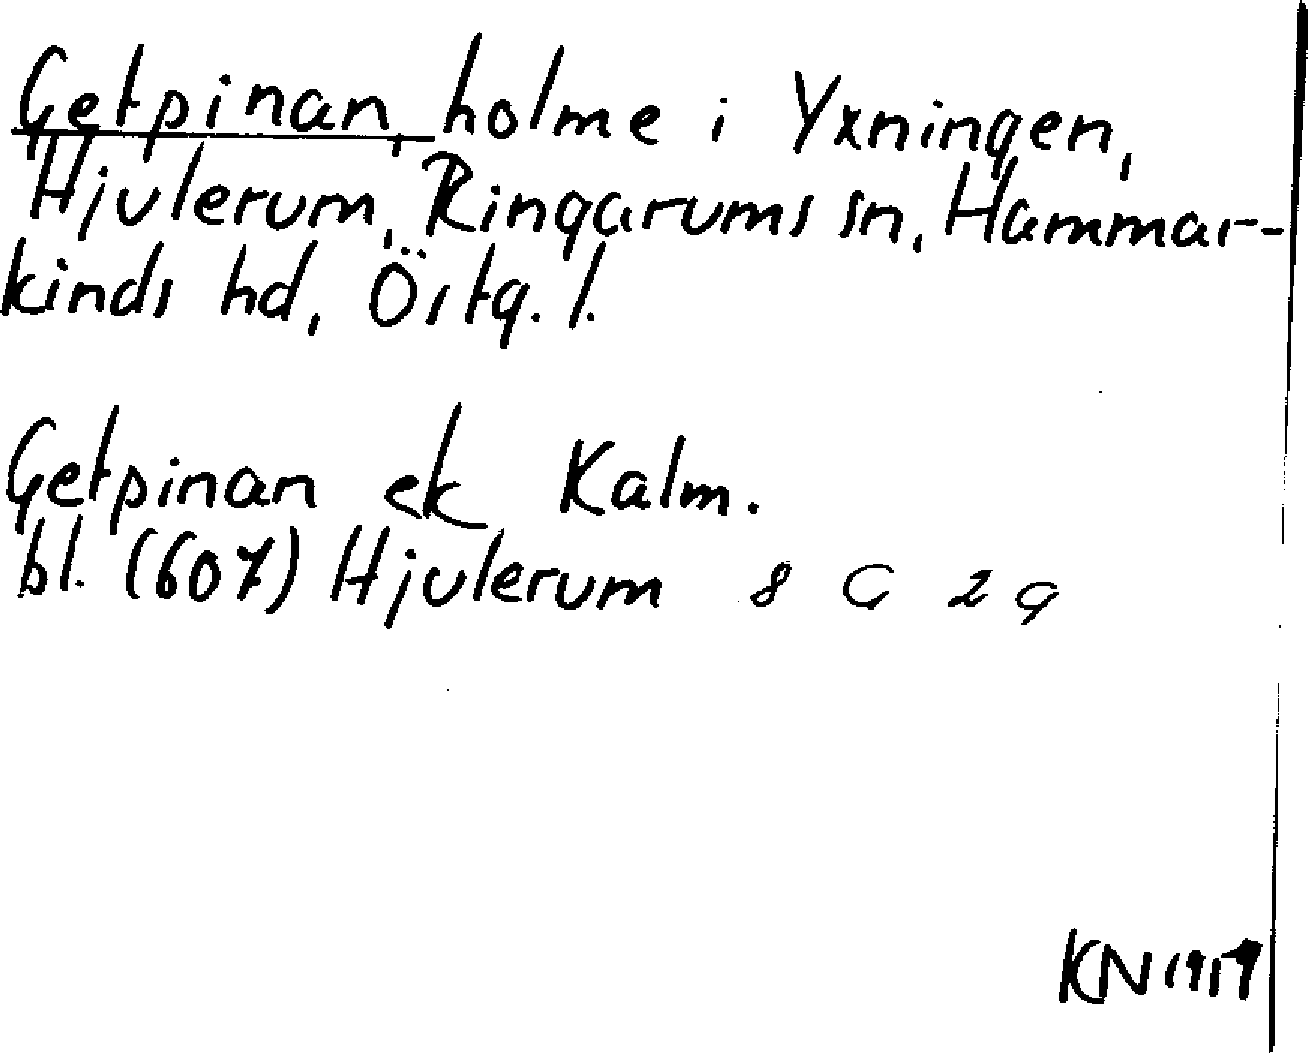 Getpinan, holme i Yxningen,
Hjulerum, Ringarums sn, Hammar-
kinds hd, Östg. l.
Getpinan ek Kalm.
bl. (607) Hjulerum 8 G 2 g
KN